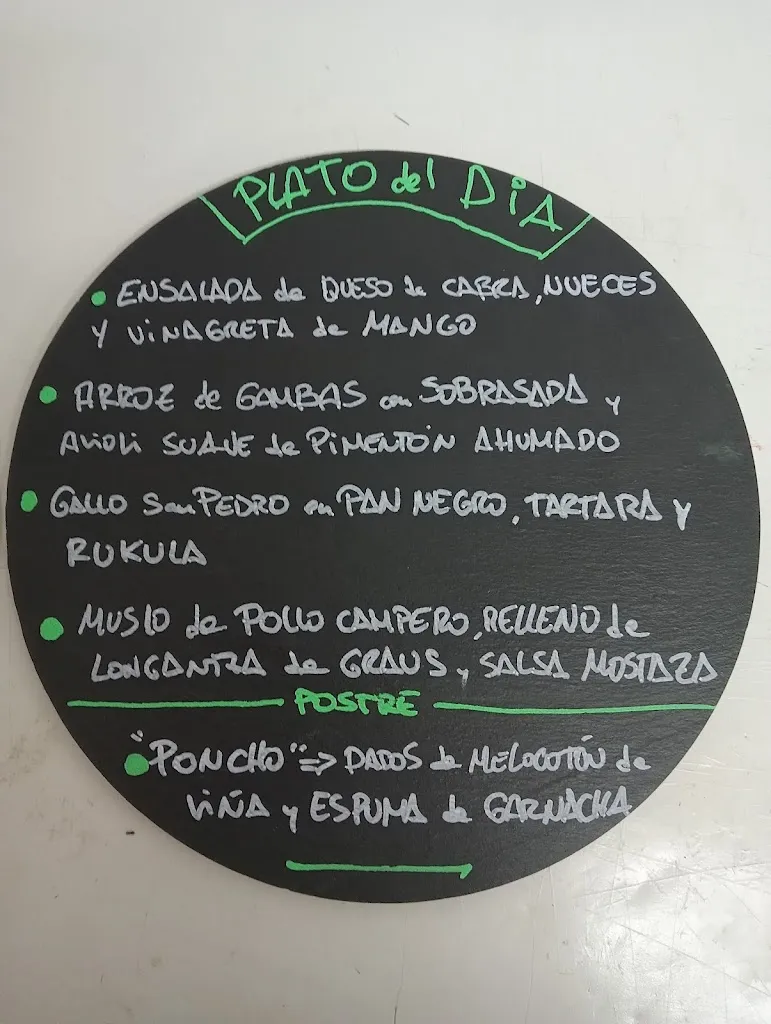 PLATO del DiA
ENSALADA de QUESO de CABRA, NUECES
Y VINAGRETA de MANGO
ARROZ de GAMBAS con SOBRASADA y
ALIOLI SUAVE de PIMENTÓN AHUMADO
GALLO San PEDRO en PAN NEGRO, TARTARA Y
RUKULA
MUSLO de POLLO CAMPERO, RELLENO de
LONGANIZA de GRAUS y SALSA MOSTAZA
POSTRE
"PONCHO" => DADOS de MELOCOTÓN de
VIÑA y ESPUMA de GARNACHA